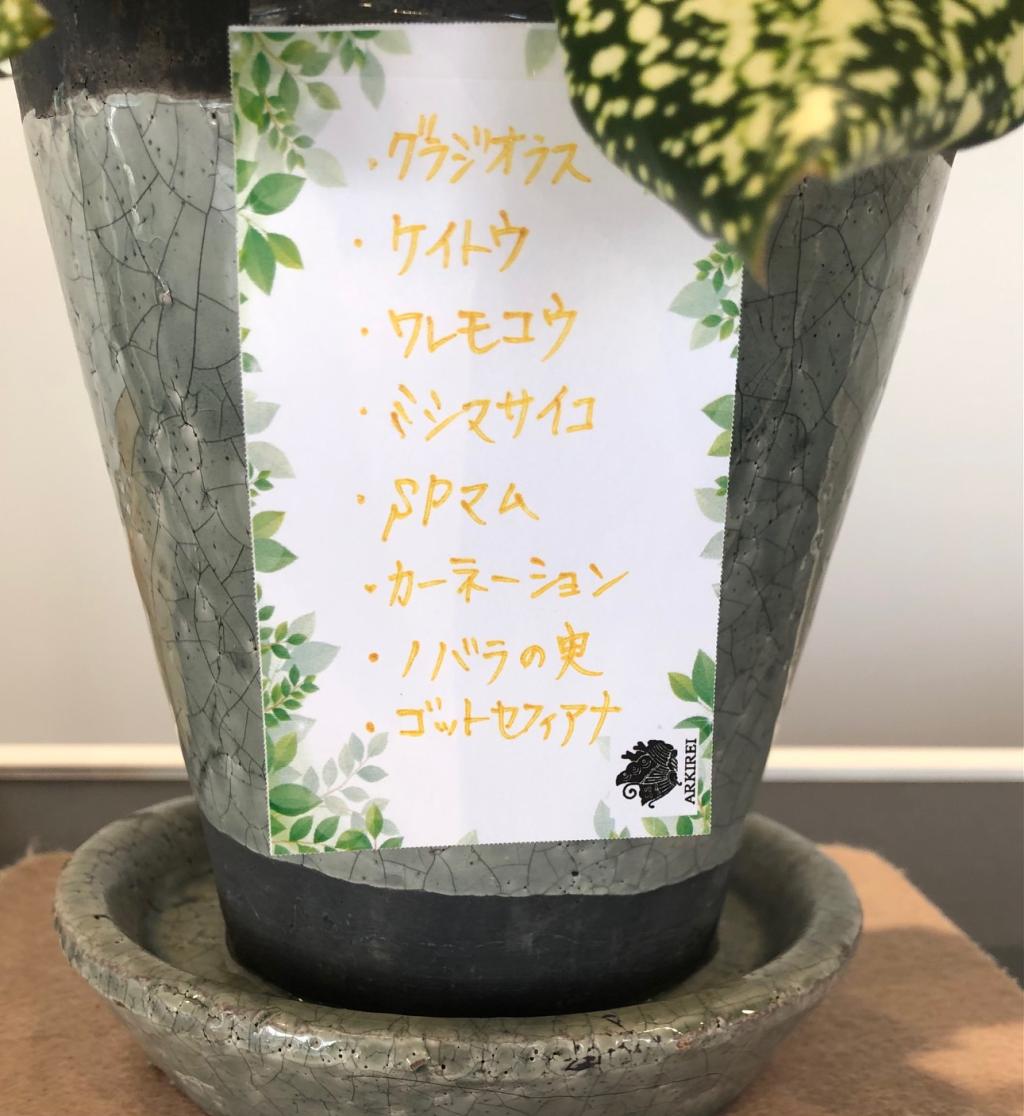 ・グラジオラス
・ケイトウ
・ワレモコウ
・ミシマサイコ
・SPマム
・カーネーション
・ノバラの実
・ゴットセフィアナ
ARKIREI